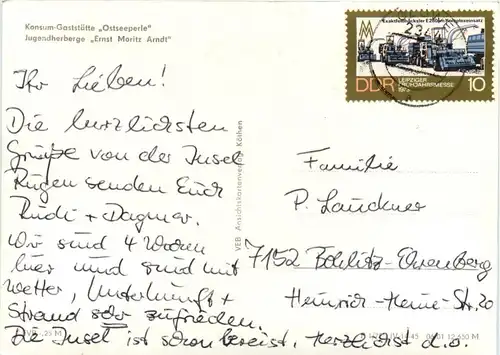 Konsum-Gaststätte „Ostseeperle"
Jugendherberge „Ernst Moritz Arndt"
Ihr Lieben!
Die herzlichsten
Grüße von der Insel
Rügen senden Euch
Rudi + Dagmar.
Wir sind 4 Wochen
hier und sind mit
Wetter, Unterkunft +
Strand sehr zufrieden.
Die Insel ist schon bereist, Herzlichst d.o.
VEB Ansichtskartenverlag Köthen
DDR
LEIPZIGER
FRÜHJAHRSMESSE
10
Familie
P. Lauckner
7152 Böhlitz-Ehrenberg
Heinrich-Heine-Str. 20